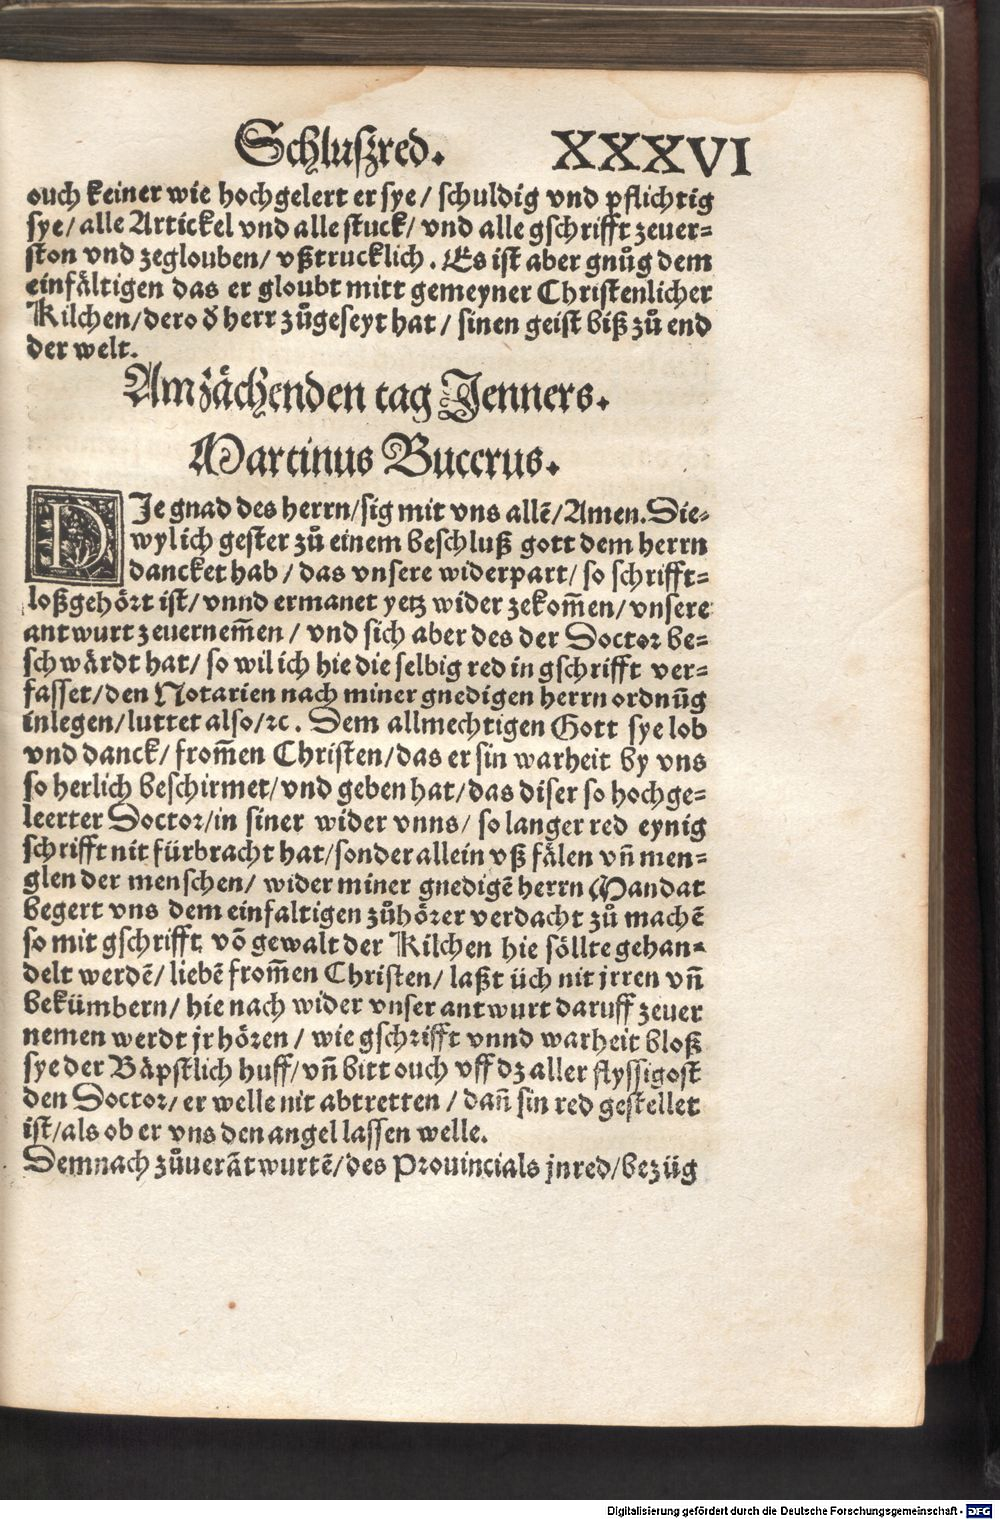 Schluſzred. XXXVI
ouch keiner wie hochgelert er sye/ schuldig vnd pflichtig
sye/ alle Artickel vnd alle stuck/ vnd alle gschrifft zeuer⸗
ston vnd zeglouben/ vßtrucklich. Es ist aber gnůg dem
einfältigen das er gloubt mitt gemeyner Christenlicher
Kilchen/ dero d̕ herr zůgeseyt hat/ sinen geist biß zů end
der welt.
Am zächenden tag Jenners.
Martinus Buccrus.
DJe gnad des herrn/ sig mit vns allē/ Amen. Die⸗
wyl ich gester zů einem beschluß gott dem herrn
dancket hab/ das vnsere widerpart/ so schrifft⸗
loß gehört ist/ vnnd ermanet yetz wider zekom̄en/ vnsere
antwurt zeuernem̄en/ vnd sich aber des der Doctor be⸗
schwärdt hat/ so wil ich hie die selbig red in gschrifft ver⸗
fasset/ den Notarien nach miner gnedigen herrn ordnūg
inlegen/ luttet also/ ꝛc. Dem allmechtigen Gott sye lob
vnd danck/ from̄en Christen/ das er sin warheit by vns
so herlich beschirmet/ vnd geben hat/ das diser so hochge⸗
leerter Doctor/ in siner wider vnns/ so langer red eynig
schrifft nit fürbracht hat/ sonder allein vß fälen vn̄ men⸗
glen der menschen/ wider miner gnedigē herrn Mandat
begert vns dem einfaltigen zůhörer verdacht zů machē
so mit gschrifft vō gewalt der Kilchen hie söllte gehan⸗
delt werdē/ liebē from̄en Christen/ laßt üch nit jrren vn̄
bekümbern/ hie nach wider vnser antwurt daruff zeuer
nemen werdt jr hören/ wie gschrifft vnnd warheit bloß
sye der Bäpstlich huff/ vn̄ bitt ouch vff dz aller flyssigost
den Doctor/ er welle nit abtretten/ dan̄ sin red gestellet
ist/ als ob er vns den angel lassen welle.
Demnach zůuerātwurtē/ des Prouincials jnred/ bezüg
Digitalisierung gefördert durch die Deutsche Forschungsgemeinschaft - DFG